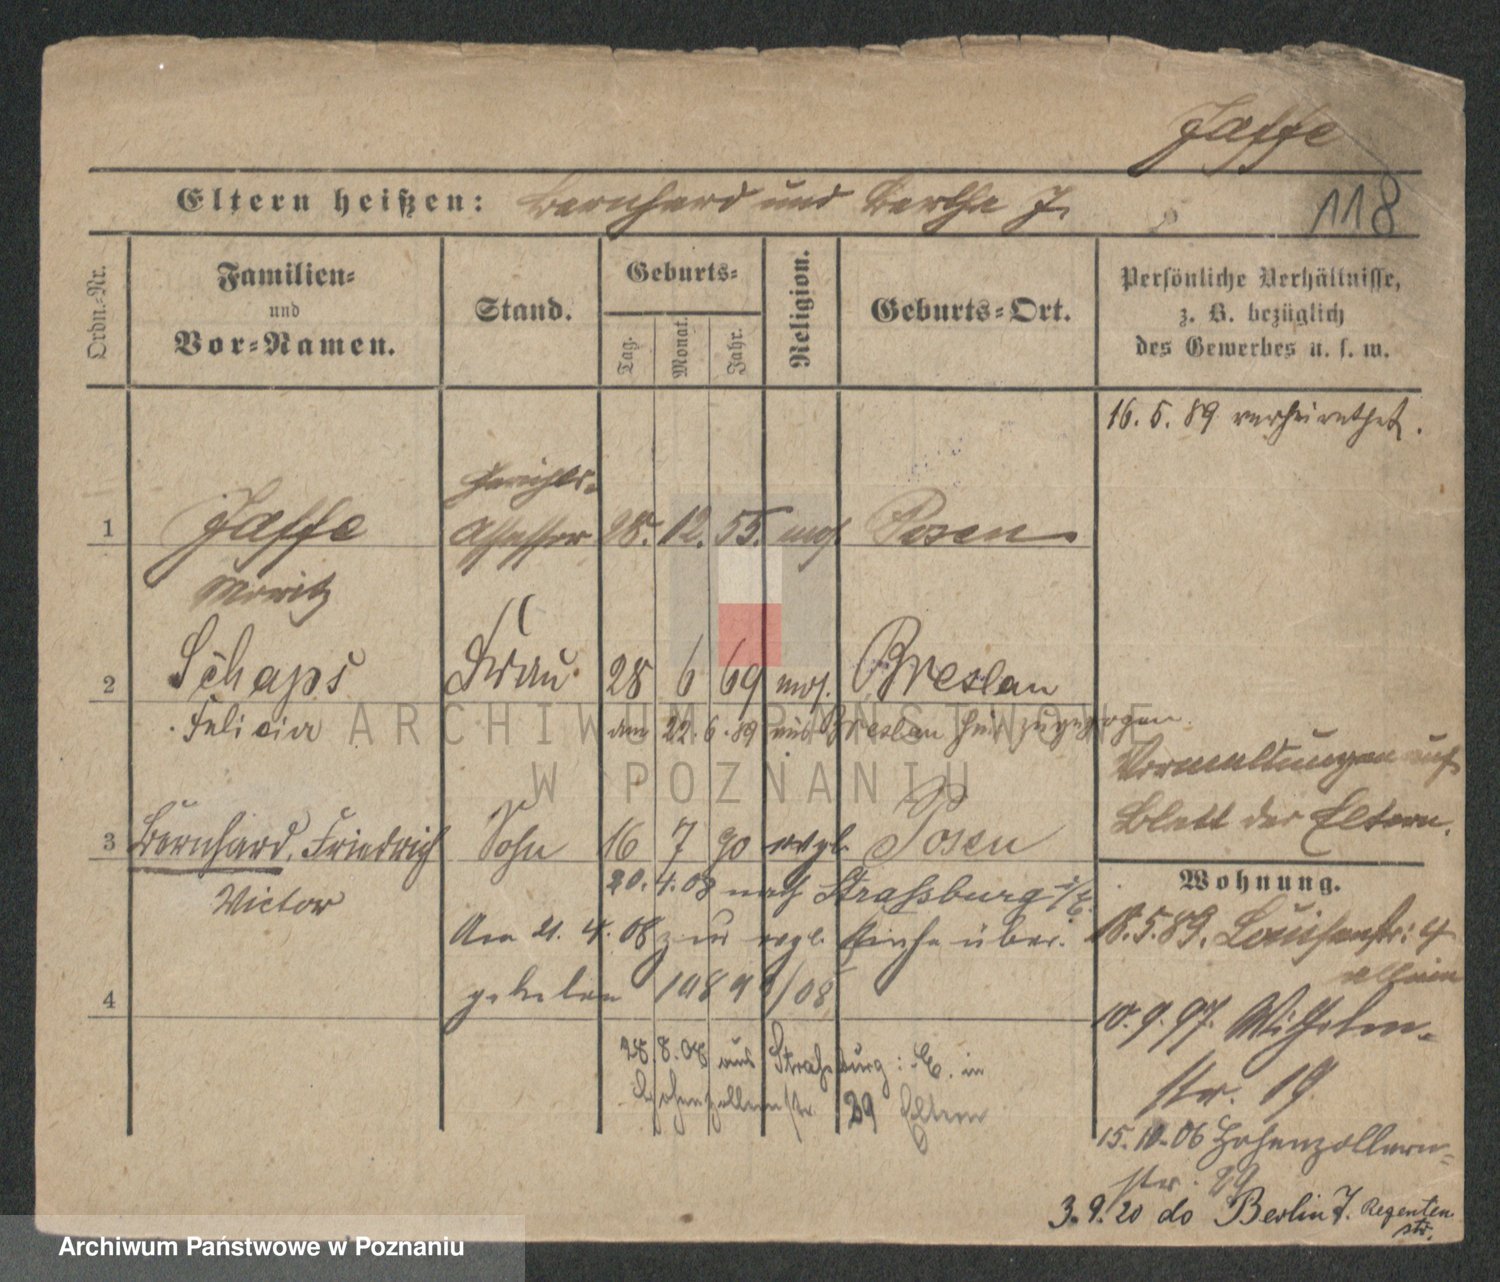 Jaffe
Eltern heißen: Bernhard und Bertha J.
118
Ordn.-Nr.
Familien-
und
Vor-Namen.
Stand.
Geburts-
Tag.
Monat.
Jahr.
Religion.
Geburts-Ort.
Persönliche Verhältnisse,
z. B. bezüglich
des Gewerbes u. s. w.
16. 5. 89 verheirathet.
Gerichts-
1 Jaffe Assessor 28. 12. 55. mos. Posen
Moritz
2 Schaps Frau 28 6 69 mos. Breslau
Felicia am 22. 6. 89 aus Breslau hier zugezogen.
Vermeldungen auf
Blatt der Eltern.
3 Bernhard, Friedrich Sohn 16 7 90 evgl. Posen
Victor
20. 4. 08 nach Strassburg i/E.
Am 21. 4. 08 zur evgl. Kirche über-
4 getreten /08
28. 8. 08 aus Strassburg i. E. in
Hohenzollernstr. 29 Eltern
Wohnung.
18. 5. 89. Louisenstr: 4
allein
10. 9. 97. Wilhelm-
str. 19.
15. 10. 06 Hohenzollern-
str. 29
3. 9. 20 do Berlin J. Regenten
str.
ARCHIWUM PAŃSTWOWE
W POZNANIU
Archiwum Państwowe w Poznaniu